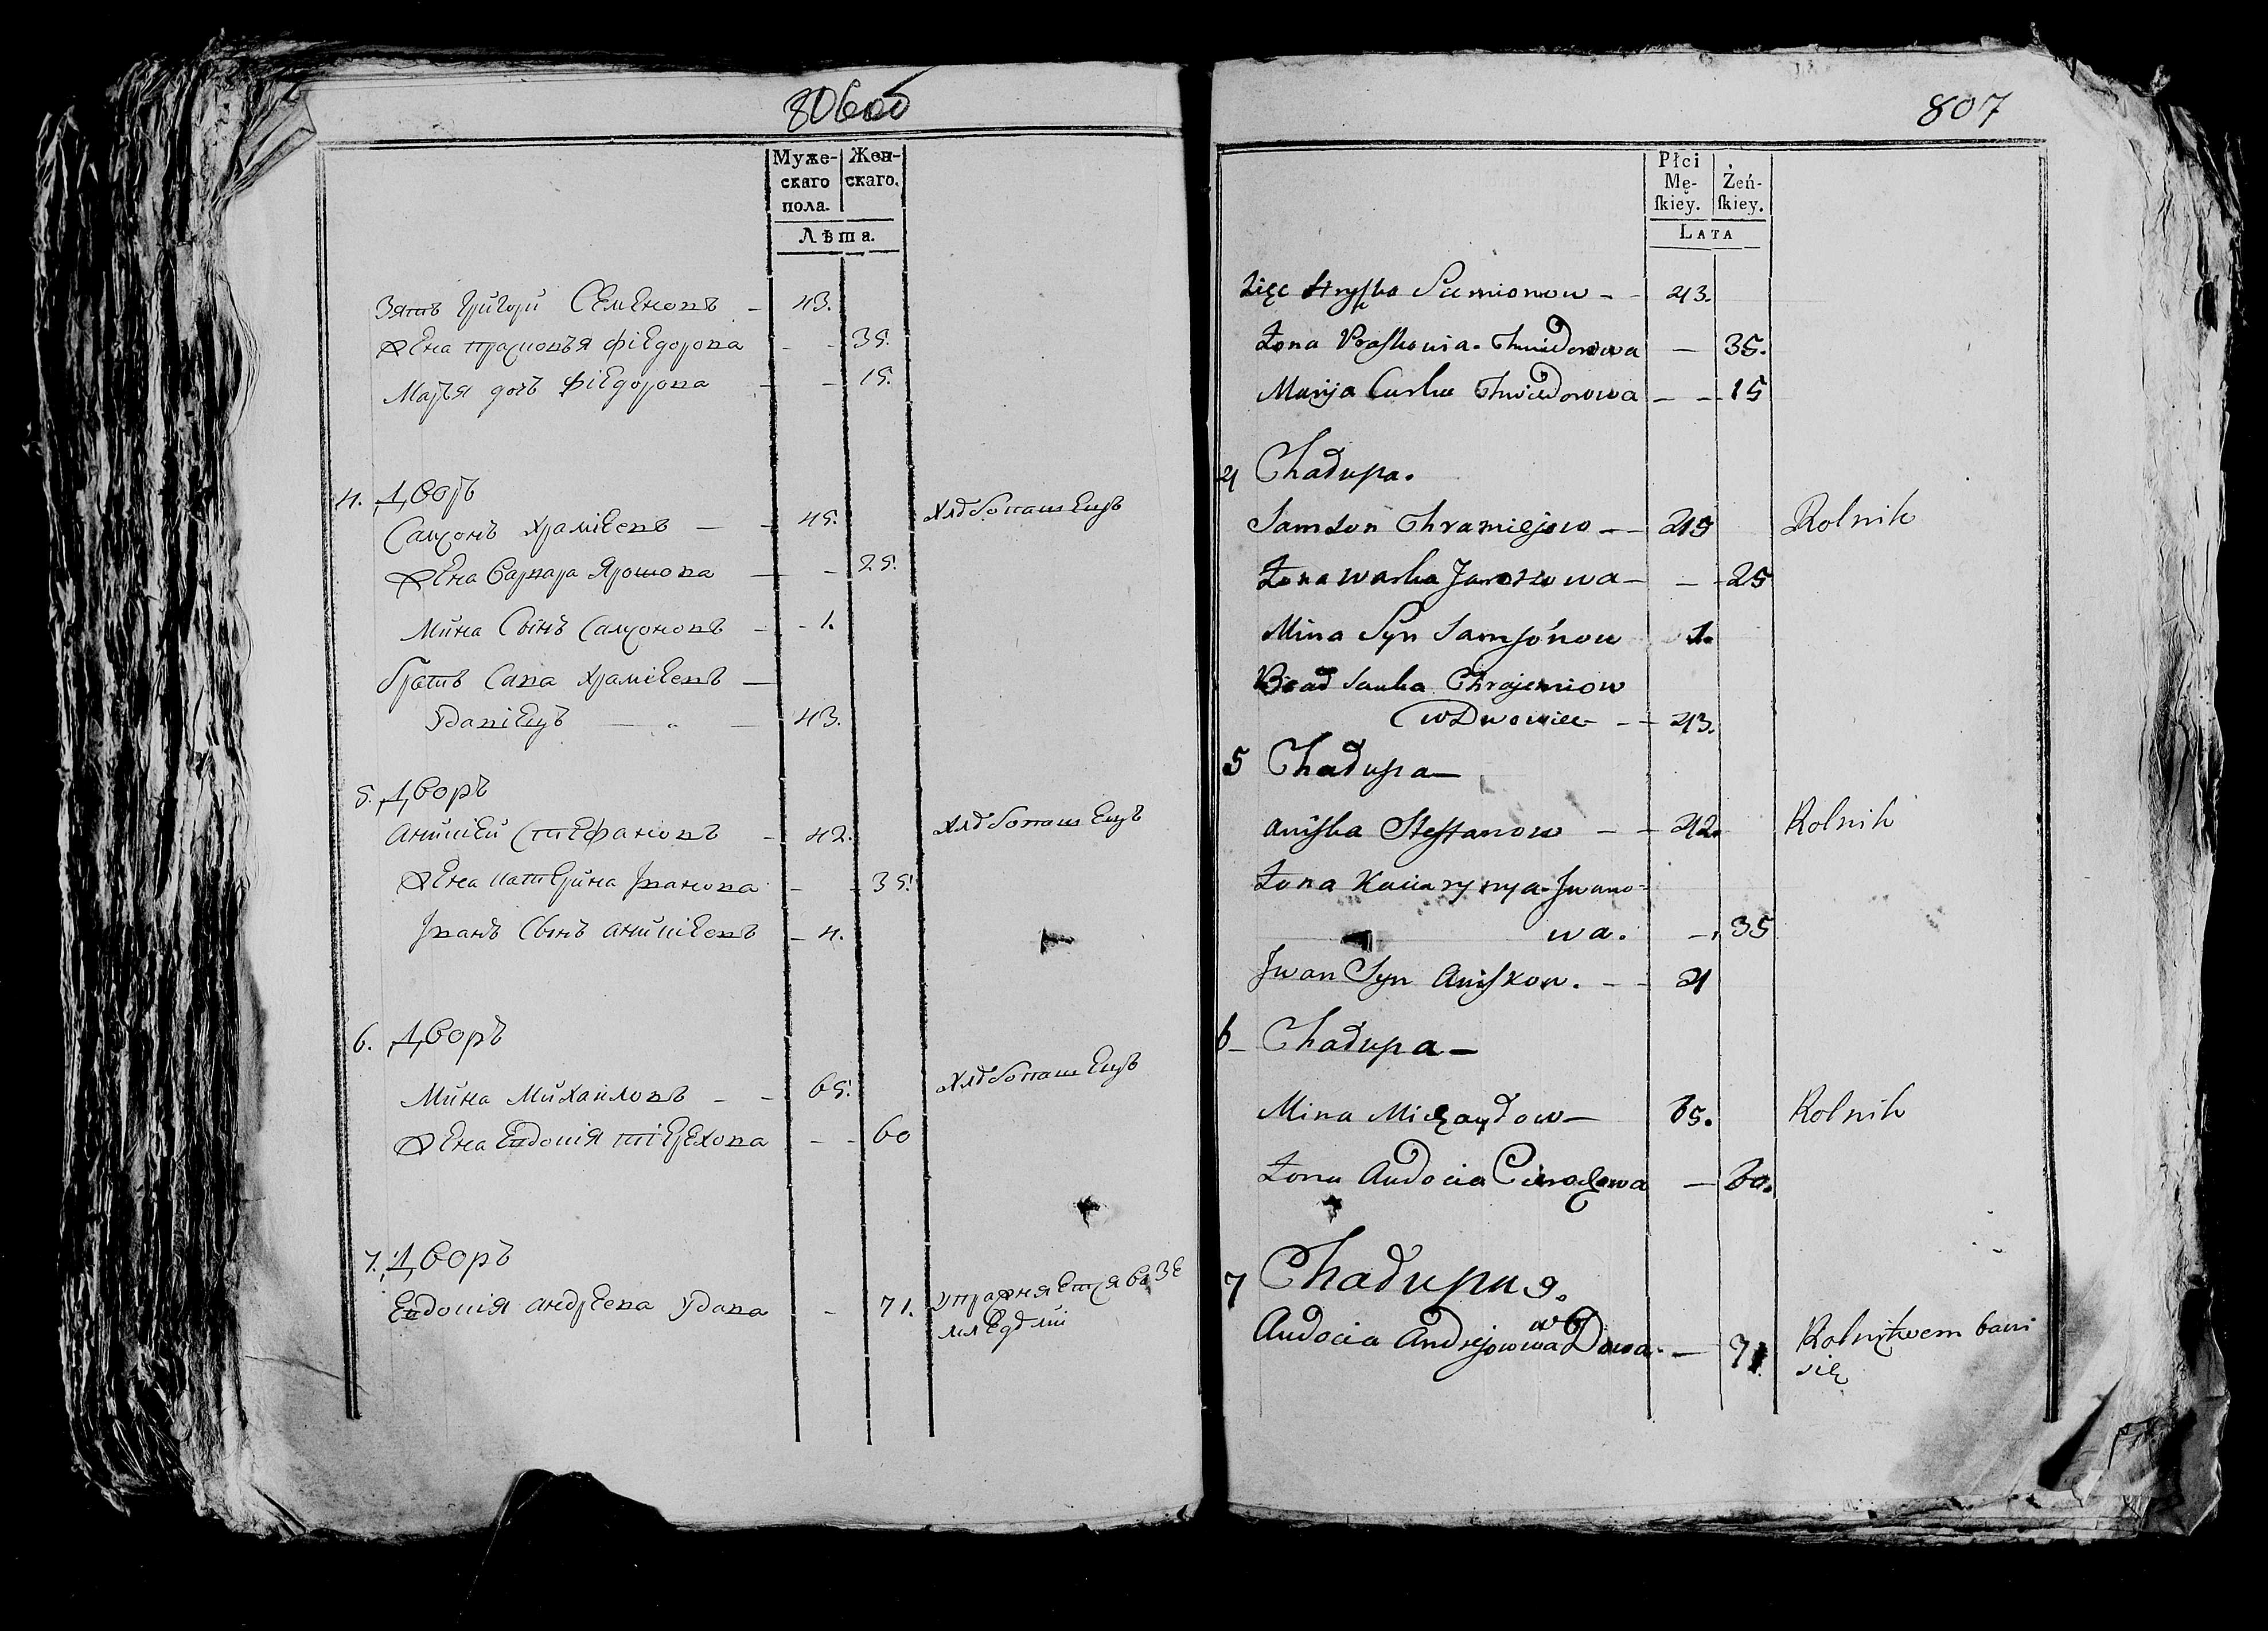 806об
Муже-
скаго
пола.
Жен-
скаго.
Лѣта.
Зять Григори Семеновъ - 43.
Жена прасковья фіедорова - - 35.
Марья дочь фіедорова - - 15.
4. Дворъ
Самсонъ храміевъ - - 45. Хлѣбопашецъ
Жена варвара Ярошова - - 25.
Мина Сынъ Самсоновъ - - 1.
братъ Сава храміевъ -
вдавіецъ - - 43.
5. Дворъ
Аниській Стефановъ - 42. Хлѣбопашецъ
Жена катерина Іванова - - 35.
Іванъ Сынъ аниськевъ - 4.
6. Дворъ
Мина Михайловъ - - 65. Хлѣбопашецъ
Жена Евдокія тіерехова - - 60
7. Дворъ
Евдокія андреева вдава - 71. упражняется въ зе
мледѣлій
807
Płci
Mę-
ſkiey.
Żeń-
ſkiey.
LATA
Zięc Hryſko Siemionow - - 43.
Żona Praſkowia Chwiedorowa - 35.
Marija Curka Chwiedorowa - - 15
4 Chałupa.
Samson Chramiejow - - 45 Rolnik
Żona Warka Jaroszowa - - - 25
Mina Syn Samſonow 1.
Brad Sauka Chrajemiow
wDwowiec - - 43.
5 Chałupa -
Aniſka Steffanow - - 42. Rolnik
Żona Kacia rynya Jwano-
wa. - 35
Jwan Syn Aniſkow. - - 4
6 - Chałupa -
Mina Michayłow - 65. Rolnik
Żona Audocia Cierachowa - 60.
7 Chałupa
Audocia Andrejowna wdowa - 71. Rolnitwem bawi
się